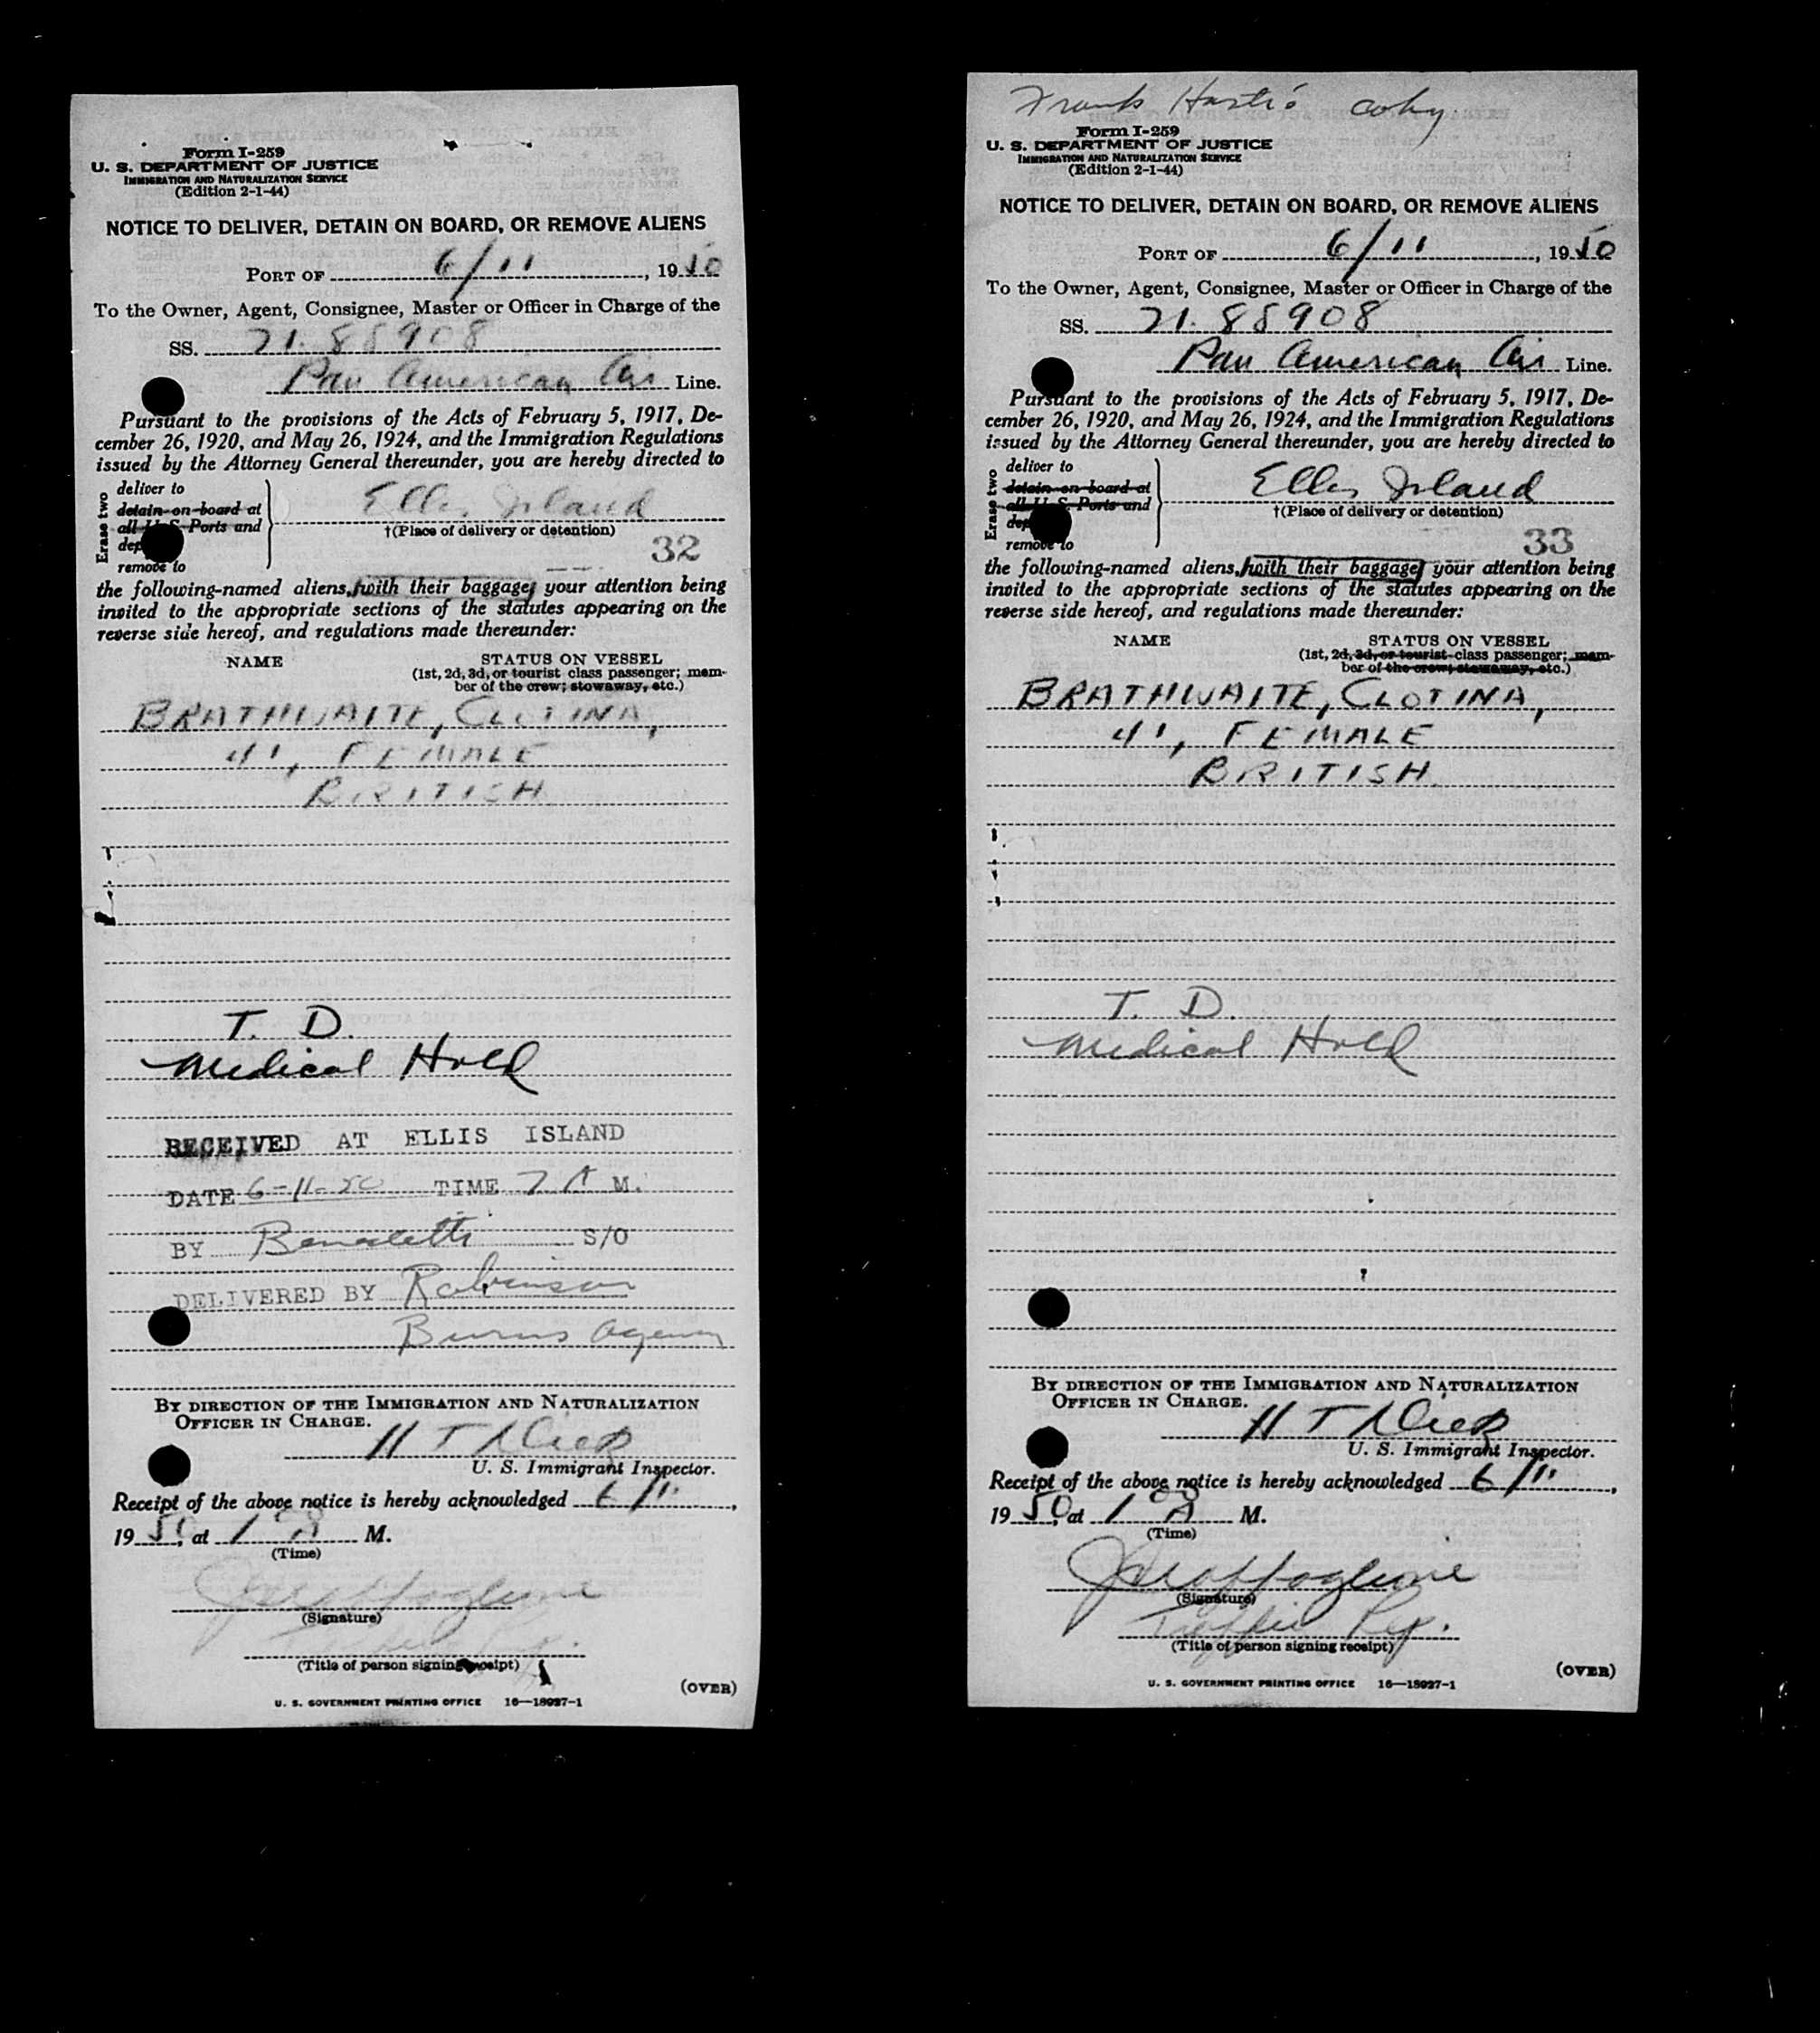 Form I-259
U. S. DEPARTMENT OF JUSTICE
IMMIGRATION AND NATURALIZATION SERVICE
(Edition 2-1-44)
NOTICE TO DELIVER, DETAIN ON BOARD, OR REMOVE ALIENS
PORT OF 6/11, 1950
To the Owner, Agent, Consignee, Master or Officer in Charge of the
SS. 21. 88908
Pan American Air Line.
Pursuant to the provisions of the Acts of February 5, 1917, De-
cember 26, 1920, and May 26, 1924, and the Immigration Regulations
issued by the Attorney General thereunder, you are hereby directed to
Erase two
deliver to
detain on board at
all U. S. Ports and
dep
remove to
Ellis Island
†(Place of delivery or detention)
32
the following-named aliens, with their baggage, your attention being
invited to the appropriate sections of the statutes appearing on the
reverse side hereof, and regulations made thereunder:
NAME STATUS ON VESSEL
(1st, 2d, 3d, or tourist class passenger; mem-
ber of the crew; stowaway, etc.)
BRATHWAITE, CLOTINA,
41, FEMALE
BRITISH
T. D.
Medical Hold
RECEIVED AT ELLIS ISLAND
DATE 6-11-50 TIME 7 A M.
BY Benedetti S/O
DELIVERED BY Robinson
Burns Agency
BY DIRECTION OF THE IMMIGRATION AND NATURALIZATION
OFFICER IN CHARGE.
U. S. Immigrant Inspector.
Receipt of the above notice is hereby acknowledged 6/11,
1950, at 1 A M.
(Time)
(Signature)
Traffic Rep.
(Title of person signing receipt)
(OVER)
U. S. GOVERNMENT PRINTING OFFICE 16—18027-1
Frank copy
Form I-259
U. S. DEPARTMENT OF JUSTICE
IMMIGRATION AND NATURALIZATION SERVICE
(Edition 2-1-44)
NOTICE TO DELIVER, DETAIN ON BOARD, OR REMOVE ALIENS
PORT OF 6/11, 1950
To the Owner, Agent, Consignee, Master or Officer in Charge of the
SS. 21. 88908
Pan American Air Line.
Pursuant to the provisions of the Acts of February 5, 1917, De-
cember 26, 1920, and May 26, 1924, and the Immigration Regulations
issued by the Attorney General thereunder, you are hereby directed to
Erase two
deliver to
detain on board at
all U. S. Ports and
dep
remove to
Ellis Island
†(Place of delivery or detention)
33
the following-named aliens, with their baggage, your attention being
invited to the appropriate sections of the statutes appearing on the
reverse side hereof, and regulations made thereunder:
NAME STATUS ON VESSEL
(1st, 2d, 3d, or tourist class passenger; mem-
ber of the crew; stowaway, etc.)
BRATHWAITE, CLOTINA,
41, FEMALE
BRITISH
T. D.
Medical Hold
BY DIRECTION OF THE IMMIGRATION AND NATURALIZATION
OFFICER IN CHARGE.
U. S. Immigrant Inspector.
Receipt of the above notice is hereby acknowledged 6/11,
1950, at 1 A M.
(Time)
(Signature)
Traffic Rep.
(Title of person signing receipt)
(OVER)
U. S. GOVERNMENT PRINTING OFFICE 16—18027-1